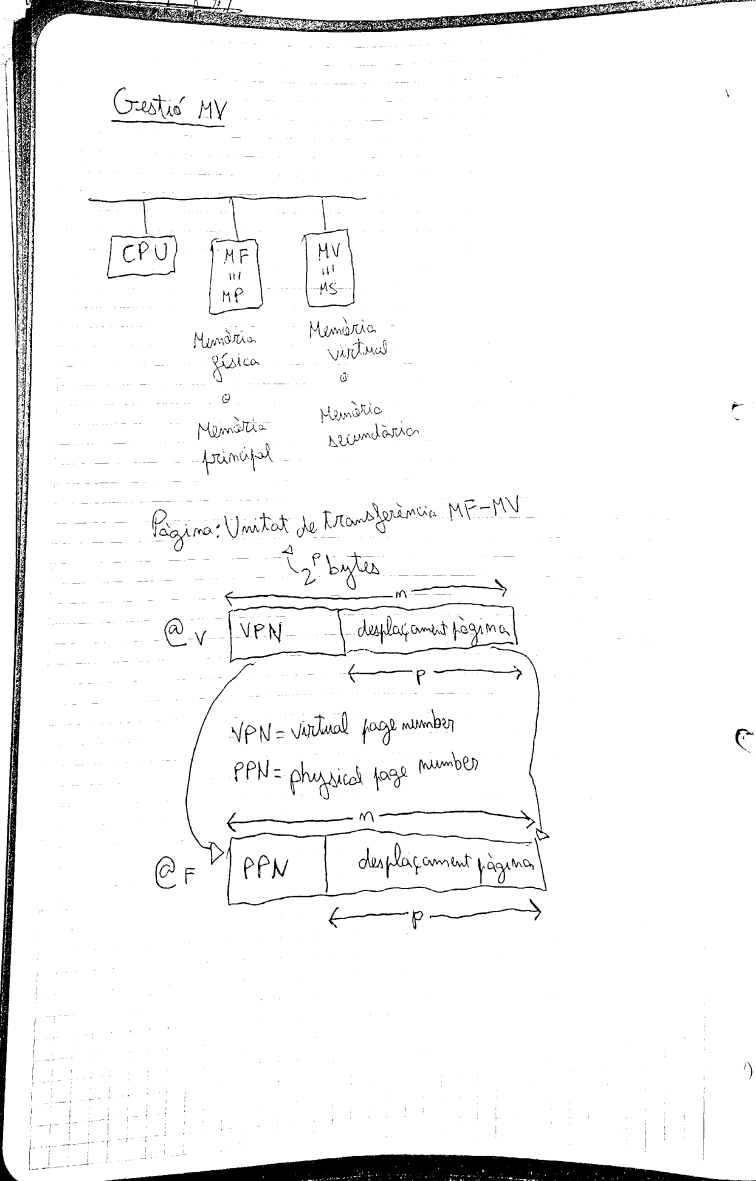 Gestió MV
CPU
MF
MP
MV
MS
Memòria
física
o
Memòria
principal
Memòria
virtual
o
Memòria
secundària
Pàgina: Unitat de transferència MF-MV
2^p bytes
n
@V VPN desplaçament pàgina
p
VPN = virtual page number
PPN = physical page number
m
@F PPN desplaçament pàgina
p